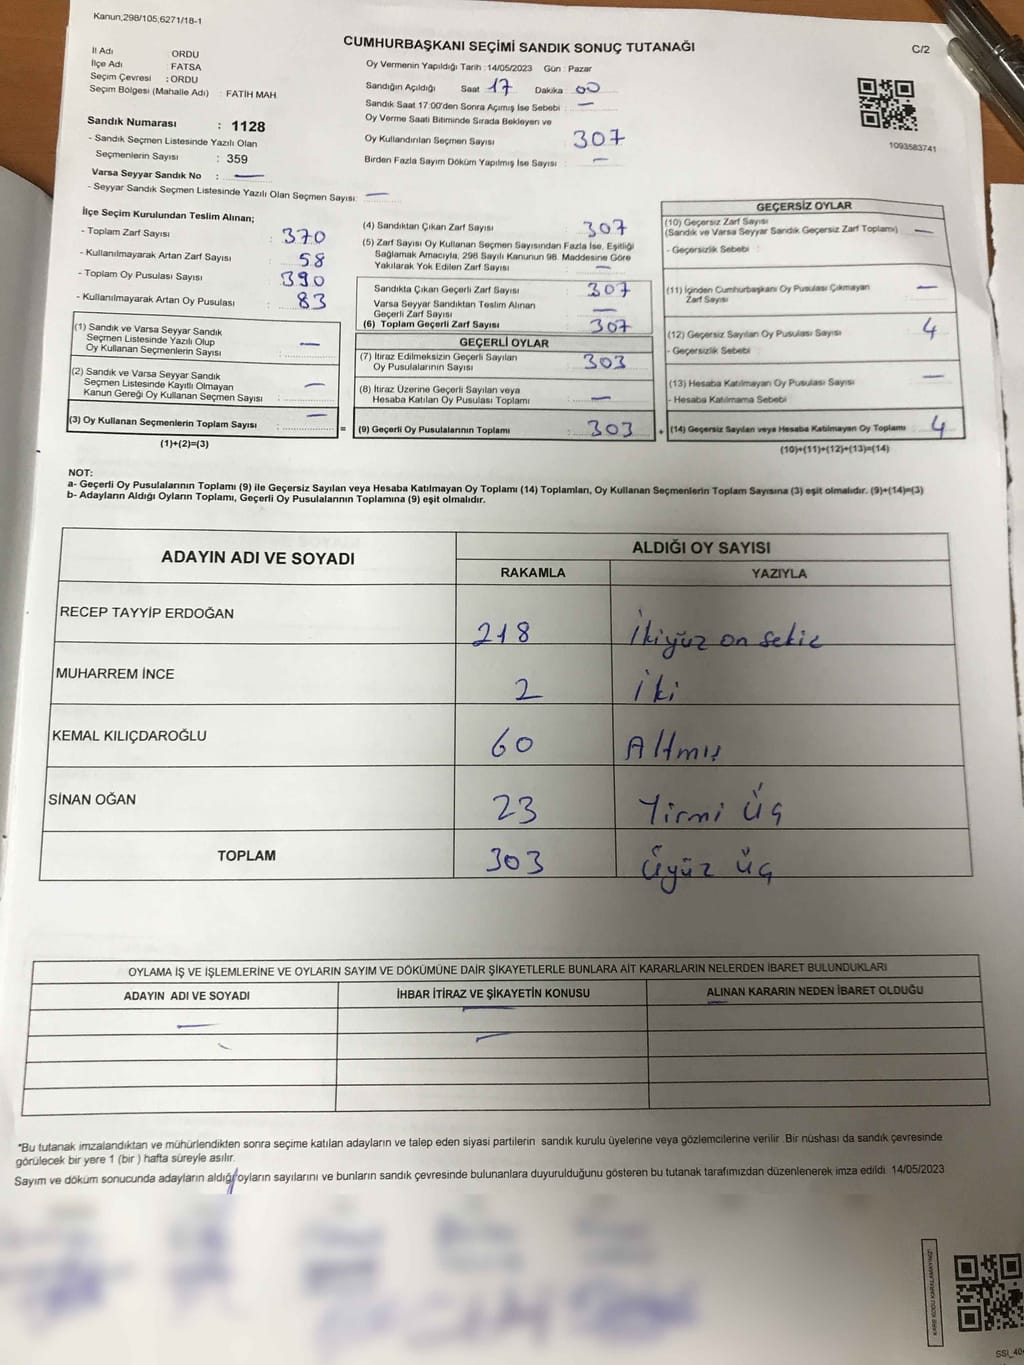 Kanun,298/105,6271/18-1
CUMHURBAŞKANI SEÇİMİ SANDIK SONUÇ TUTANAĞI
C/2
İl Adı ORDU
İlçe Adı : FATSA
Seçim Çevresi : ORDU
Seçim Bölgesi (Mahalle Adı) : FATİH MAH.
Sandık Numarası : 1128
- Sandık Seçmen Listesinde Yazılı Olan
Seçmenlerin Sayısı : 359
Varsa Seyyar Sandık No : —
- Seyyar Sandık Seçmen Listesinde Yazılı Olan Seçmen Sayısı: —
Oy Vermenin Yapıldığı Tarih : 14/05/2023 Gün : Pazar
Sandığın Açıldığı Saat 17 Dakika 00
Sandık Saat 17:00'den Sonra Açımış İse Sebebi : —
Oy Verme Saati Bitiminde Sırada Bekleyen ve
Oy Kullandırılan Seçmen Sayısı : 307
Birden Fazla Sayım Döküm Yapılmış İse Sayısı : —
1093583741
İlçe Seçim Kurulundan Teslim Alınan;
- Toplam Zarf Sayısı : 370
- Kullanılmayarak Artan Zarf Sayısı : 58
- Toplam Oy Pusulası Sayısı : 390
- Kullanılmayarak Artan Oy Pusulası : 83
(1) Sandık ve Varsa Seyyar Sandık
Seçmen Listesinde Yazılı Olup
Oy Kullanan Seçmenlerin Sayısı : —
(2) Sandık ve Varsa Seyyar Sandık
Seçmen Listesinde Kayıtlı Olmayan
Kanun Gereği Oy Kullanan Seçmen Sayısı : —
(3) Oy Kullanan Seçmenlerin Toplam Sayısı : — =
(1)+(2)=(3)
(4) Sandıktan Çıkan Zarf Sayısı : 307
(5) Zarf Sayısı Oy Kullanan Seçmen Sayısından Fazla İse, Eşitliği
Sağlamak Amacıyla, 298 Sayılı Kanunun 98. Maddesine Göre
Yakılarak Yok Edilen Zarf Sayısı : —
Sandıkla Çıkan Geçerli Zarf Sayısı : 307
Varsa Seyyar Sandıktan Teslim Alınan
Geçerli Zarf Sayısı : —
(6) Toplam Geçerli Zarf Sayısı : 307
GEÇERLİ OYLAR
(7) İtiraz Edilmeksizin Geçerli Sayılan
Oy Pusulalarının Sayısı : 303
(8) İtiraz Üzerine Geçerli Sayılan veya
Hesaba Katılan Oy Pusulası Toplamı : —
(9) Geçerli Oy Pusulalarının Toplamı : 303 +
GEÇERSİZ OYLAR
(10) Geçersiz Zarf Sayısı
(Sandık ve Varsa Seyyar Sandık Geçersiz Zarf Toplamı) : —
- Geçersizlik Sebebi :
(11) İçinden Cumhurbaşkanı Oy Pusulası Çıkmayan
Zarf Sayısı : —
(12) Geçersiz Sayılan Oy Pusulası Sayısı : 4
- Geçersizlik Sebebi
(13) Hesaba Katılmayan Oy Pusulası Sayısı : —
- Hesaba Katılmama Sebebi
(14) Geçersiz Sayılan veya Hesaba Katılmayan Oy Toplamı : 4
(10)+(11)+(12)+(13)=(14)
NOT:
a- Geçerli Oy Pusulalarının Toplamı (9) ile Geçersiz Sayılan veya Hesaba Katılmayan Oy Toplamı (14) Toplamları, Oy Kullanan Seçmenlerin Toplam Sayısına (3) eşit olmalıdır. (9)+(14)=(3)
b- Adayların Aldığı Oyların Toplamı, Geçerli Oy Pusulalarının Toplamına (9) eşit olmalıdır.
ADAYIN ADI VE SOYADI ALDIĞI OY SAYISI
RAKAMLA YAZIYLA
RECEP TAYYİP ERDOĞAN 218 İkiyüz on sekiz
MUHARREM İNCE 2 İki
KEMAL KILIÇDAROĞLU 60 Altmış
SİNAN OĞAN 23 Yirmi üç
TOPLAM 303 Üçyüz üç
OYLAMA İŞ VE İŞLEMLERİNE VE OYLARIN SAYIM VE DÖKÜMÜNE DAİR ŞİKAYETLERLE BUNLARA AİT KARARLARIN NELERDEN İBARET BULUNDUKLARI
ADAYIN ADI VE SOYADI İHBAR İTİRAZ VE ŞİKAYETİN KONUSU ALINAN KARARIN NEDEN İBARET OLDUĞU
*Bu tutanak imzalandıktan ve mühürlendikten sonra seçime katılan adayların ve talep eden siyasi partilerin sandık kurulu üyelerine veya gözlemcilerine verilir. Bir nüshası da sandık çevresinde
görülecek bir yere 1 (bir ) hafta süreyle asılır.
Sayım ve döküm sonucunda adayların aldığı oyların sayılarını ve bunların sandık çevresinde bulunanlara duyurulduğunu gösteren bu tutanak tarafımızdan düzenlenerek imza edildi. 14/05/2023
KARE KODU KARALAMAYINIZ!